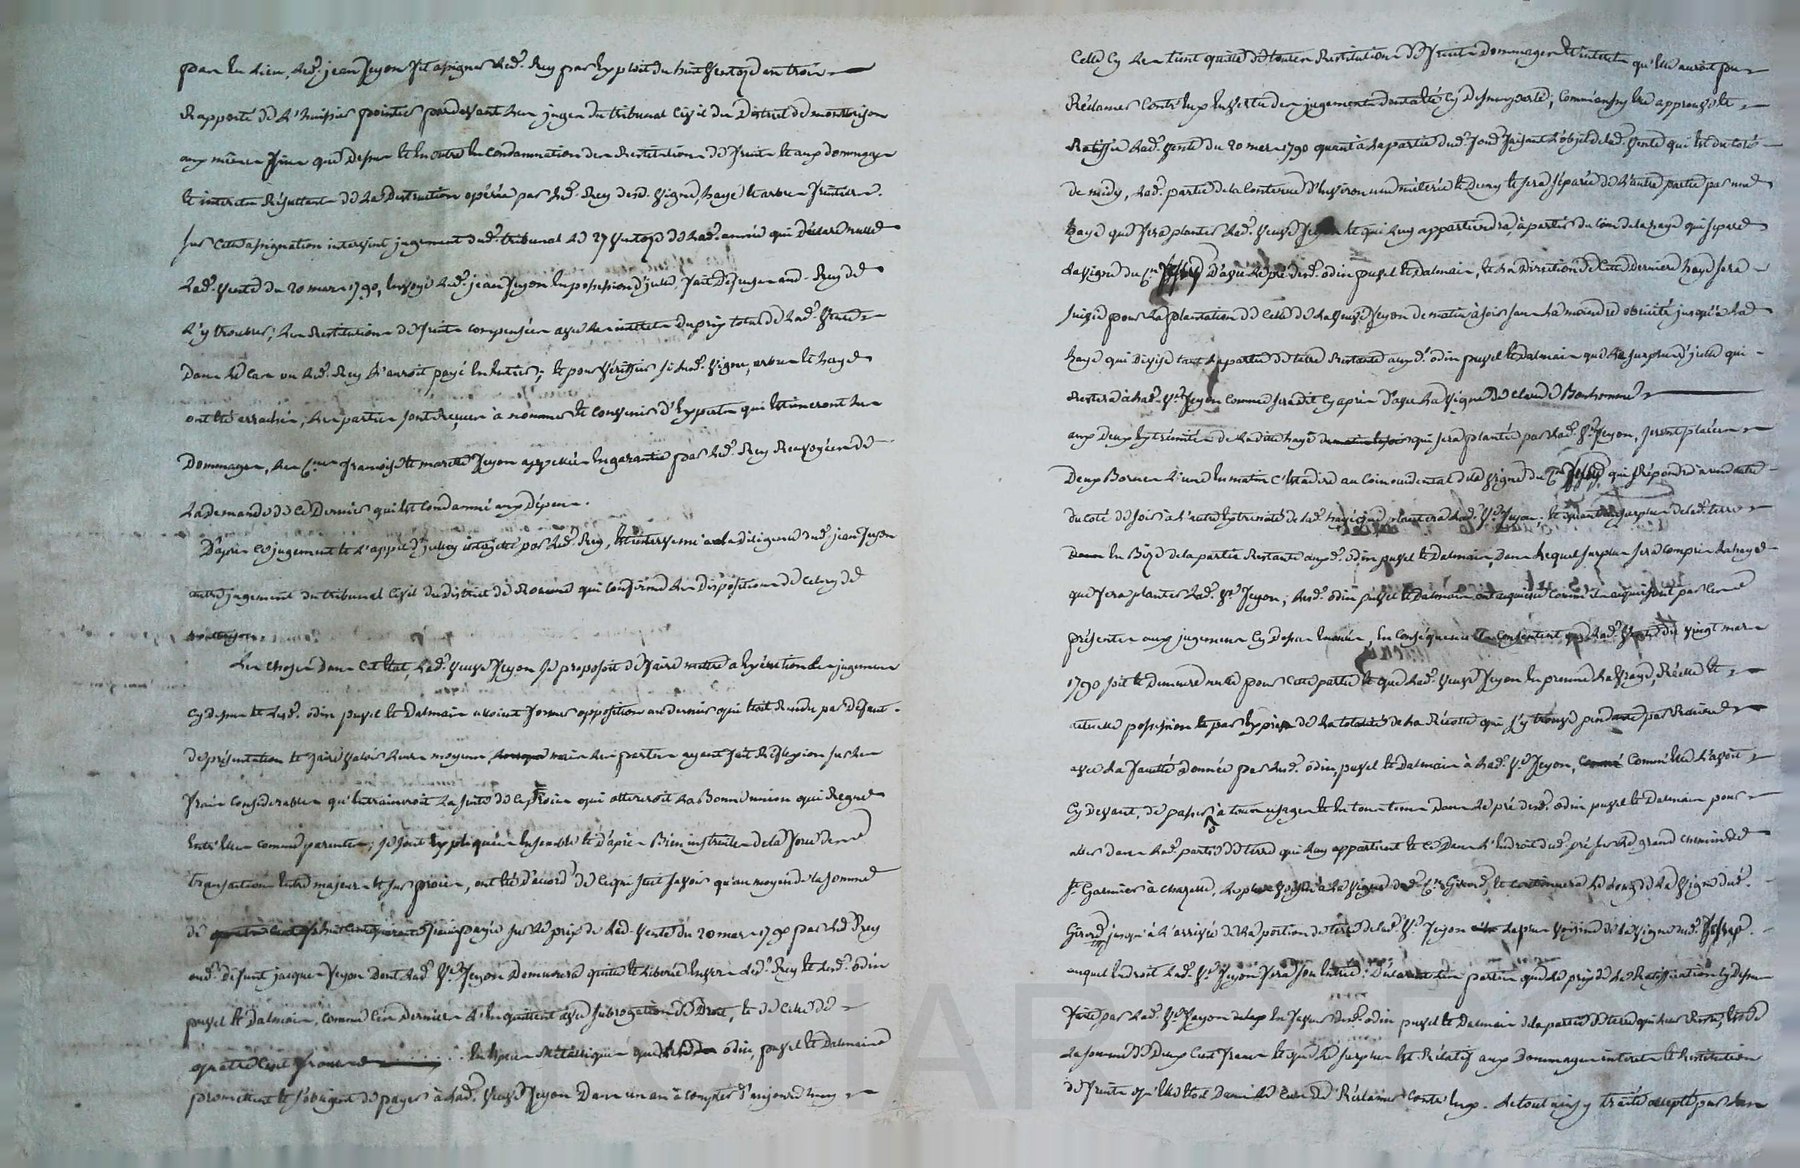 par les siens, led. jean Jeyon fit assigner led. Rey par exploit du huit ventose an trois
Rapporté de l'huissier pointier pardevant les juges du tribunal civil du District de montbrison
aux mêmes fins que dessus et en outre en condamnation des Restitutions de fruits et aux dommages
et interets Résultants de la Destruction opérée par led. Rey desd. vigne, haye et arbres fruitiers.
sur cette assignation intervint jugement dud. tribunal le 27 ventose de lad. année qui déclare nulle
lad. vente du 20 mars 1790, envoye led. jean Jeyon en possession d'icelle, fait Defenses aud. Rey de
l'y troubler; les Restitutions de fruits compensées avec les interets du prix total de lad. vente
Dans le cas ou led. Rey l'auroit payé en entier; et pour vériffier si lad. vigne, arbres et haye
ont été arrachés, les parties sont reçues à nommer et convenir d'experts qui estimeront les
Dommages, les Cens françois et marcel Jeyon appellés en garantie par led. Rey Renvoyés de
la demande de ce Dernier qui est condamné aux dépens.
D'après ce jugement et l'appel interjetté par led. Rey, est intervenu à la diligence dud. jean Jeyon
autre jugement du tribunal civil du district de Roanne qui confirme les dispositions de celuy de
montbrison.
Les choses dans cet état, lad. veuve Jeyon se proposoit de faire mettre à exécution les jugements
cy dessus et lesd. odin pupel et Dalmais avoient former opposition au dernier qui étoit Rendu par Défaut
de présentation et faire valoir leurs moyens mais les parties ayant fait Réflexion sur les
frais considérables qu'entraineroit la suite de ce procès qui altereroit la bonne union qui Regne
entr'elles comme parentes; se sont expliquées ensemble et d'après Bien instruites de la force des
transactions entre majeurs et sur procès, ont été d'accord de ce qui suit savoir qu'au moyen de la somme
de payée sur le prix de lad. vente du 20 mars 1790 par led. Rey
aud. défunt jacques Jeyon dont lad. Ve Jeyon Demeurera quitte et libérée envers led. Rey et lesd. odin
pupel et Dalmais, comme ces derniers l'en quittent avec subrogation de Droit, et de celle de
quatre cent francs en espèces métalliques que lesd. odin, pupel et Dalmais
promettent et s'obligent de payer à lad. veuve Jeyon Dans un an à compter d'aujourd'huy
Celle cy les tient quittes de toutes Restitutions de fruits Dommages et interets qu'elle auroit pu
Réclamer contr'eux en vertu des jugements dont a été cy dessus parlé; comme aussy elle approuve et
Ratiffie lad. vente du 20 mars 1790 quant à la partie dud. fond faisant l'objet de lad. vente qui est du coté
de midy, lad. partie de la contenue d'environ une méterée et Demy et sera séparée de l'autre partie par une
haye que fera planter lad. veuve Jeyon et qui luy appartiendra, à partir du coin de la haye qui sépare
la vigne du Cn D'avec le pré desd. odin pupel et Dalmais, et la Direction de cette dernière haye sera
suivie pour la plantation de celle de la veuve Jeyon de matin à soir sans la moindre obicité jusqu'à la
haye qui divise tant la partie de terre Restante auxd. odin pupel et Dalmais que le surplus d'icelle qui
restera à lad. Ve Jeyon comme sera dit cy après d'avec la vigne de Claude Bonhomme
aux Deux extrémités de laditte haye qui sera plantée par lad. Ve Jeyon, seront placées
Deux Bornes l'une en matin c'est à dire au coin occidental de la vigne du Cn qui Répondra à une autre
du coté de soir à l'autre extremité de la d. haye que plantera lad. Ve Jeyon. et quant au surplus de lad. terre
en Bize de la partie Restante auxd. odin pupel et Dalmais, Dans lequel surplus sera comprise la haye
que fera planter lad. Ve Jeyon, lesd. odin pupel et Dalmais ont acquiescé comme ils acquiescent par ces
présentes aux jugements cy dessus énoncés, en conséquence ils consentent que lad. vente du vingt mars
1790 soit et Demeure nulle pour cette partie et que lad. veuve Jeyon en prenne la vraye, réelle et
actuelle possession et par exprès de la totalité de la Récolte qui s'y trouve pendante par Racines
avec la faculté donnée par lesd. odin, pupel et Dalmais à lad. Ve Jeyon, comme elle l'avoit
cy devant, de passer à tous usages et en tous tems dans le pré desd. odin pupel et Dalmais pour
aller dans lad. partie de terre qui luy appartient et ce Dans l'endroit dud. pré sur le grand chemin de
St Garmier à chazelle, le plus voisin à la vigne dud. Cn Girerd, et continuera le long de la vigne dud.
Girerd jusqu'à l'arrivée de la portion de terre de lad. Ve Jeyon la plus voisine de la vigne dud.
auquel endroit lad. Ve Jeyon fera son entrée; Déclarent les parties que le prix de la Ratiffication cy dessus
faite par lad. Ve Jeyon en faveur desd. odin pupel et Dalmais de la partie de terre qui leur Reste, est de
la somme de Deux cent francs et que le surplus est Rélatif aux Dommages interets et Restitution
de fruits qu'elle étoit dans le cas de Réclamer contr'eux. Le tout ainsy traité accepté par les